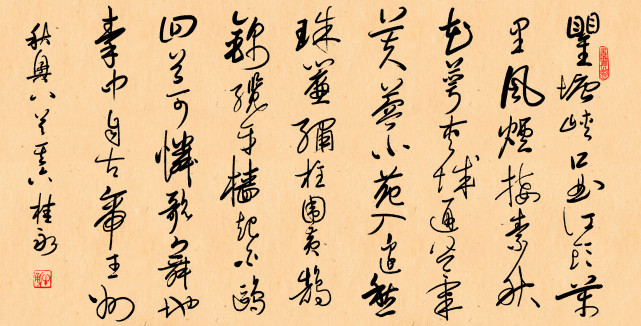 瞿塘峽口曲江頭萬
里風煙接素秋
花萼夾城通御氣
芙蓉小苑入邊愁
珠簾繡柱圍黃鵠
錦纜牙檣起白鷗
回首可憐歌舞地
秦中自古帝王州
秋興八首其六 桂永